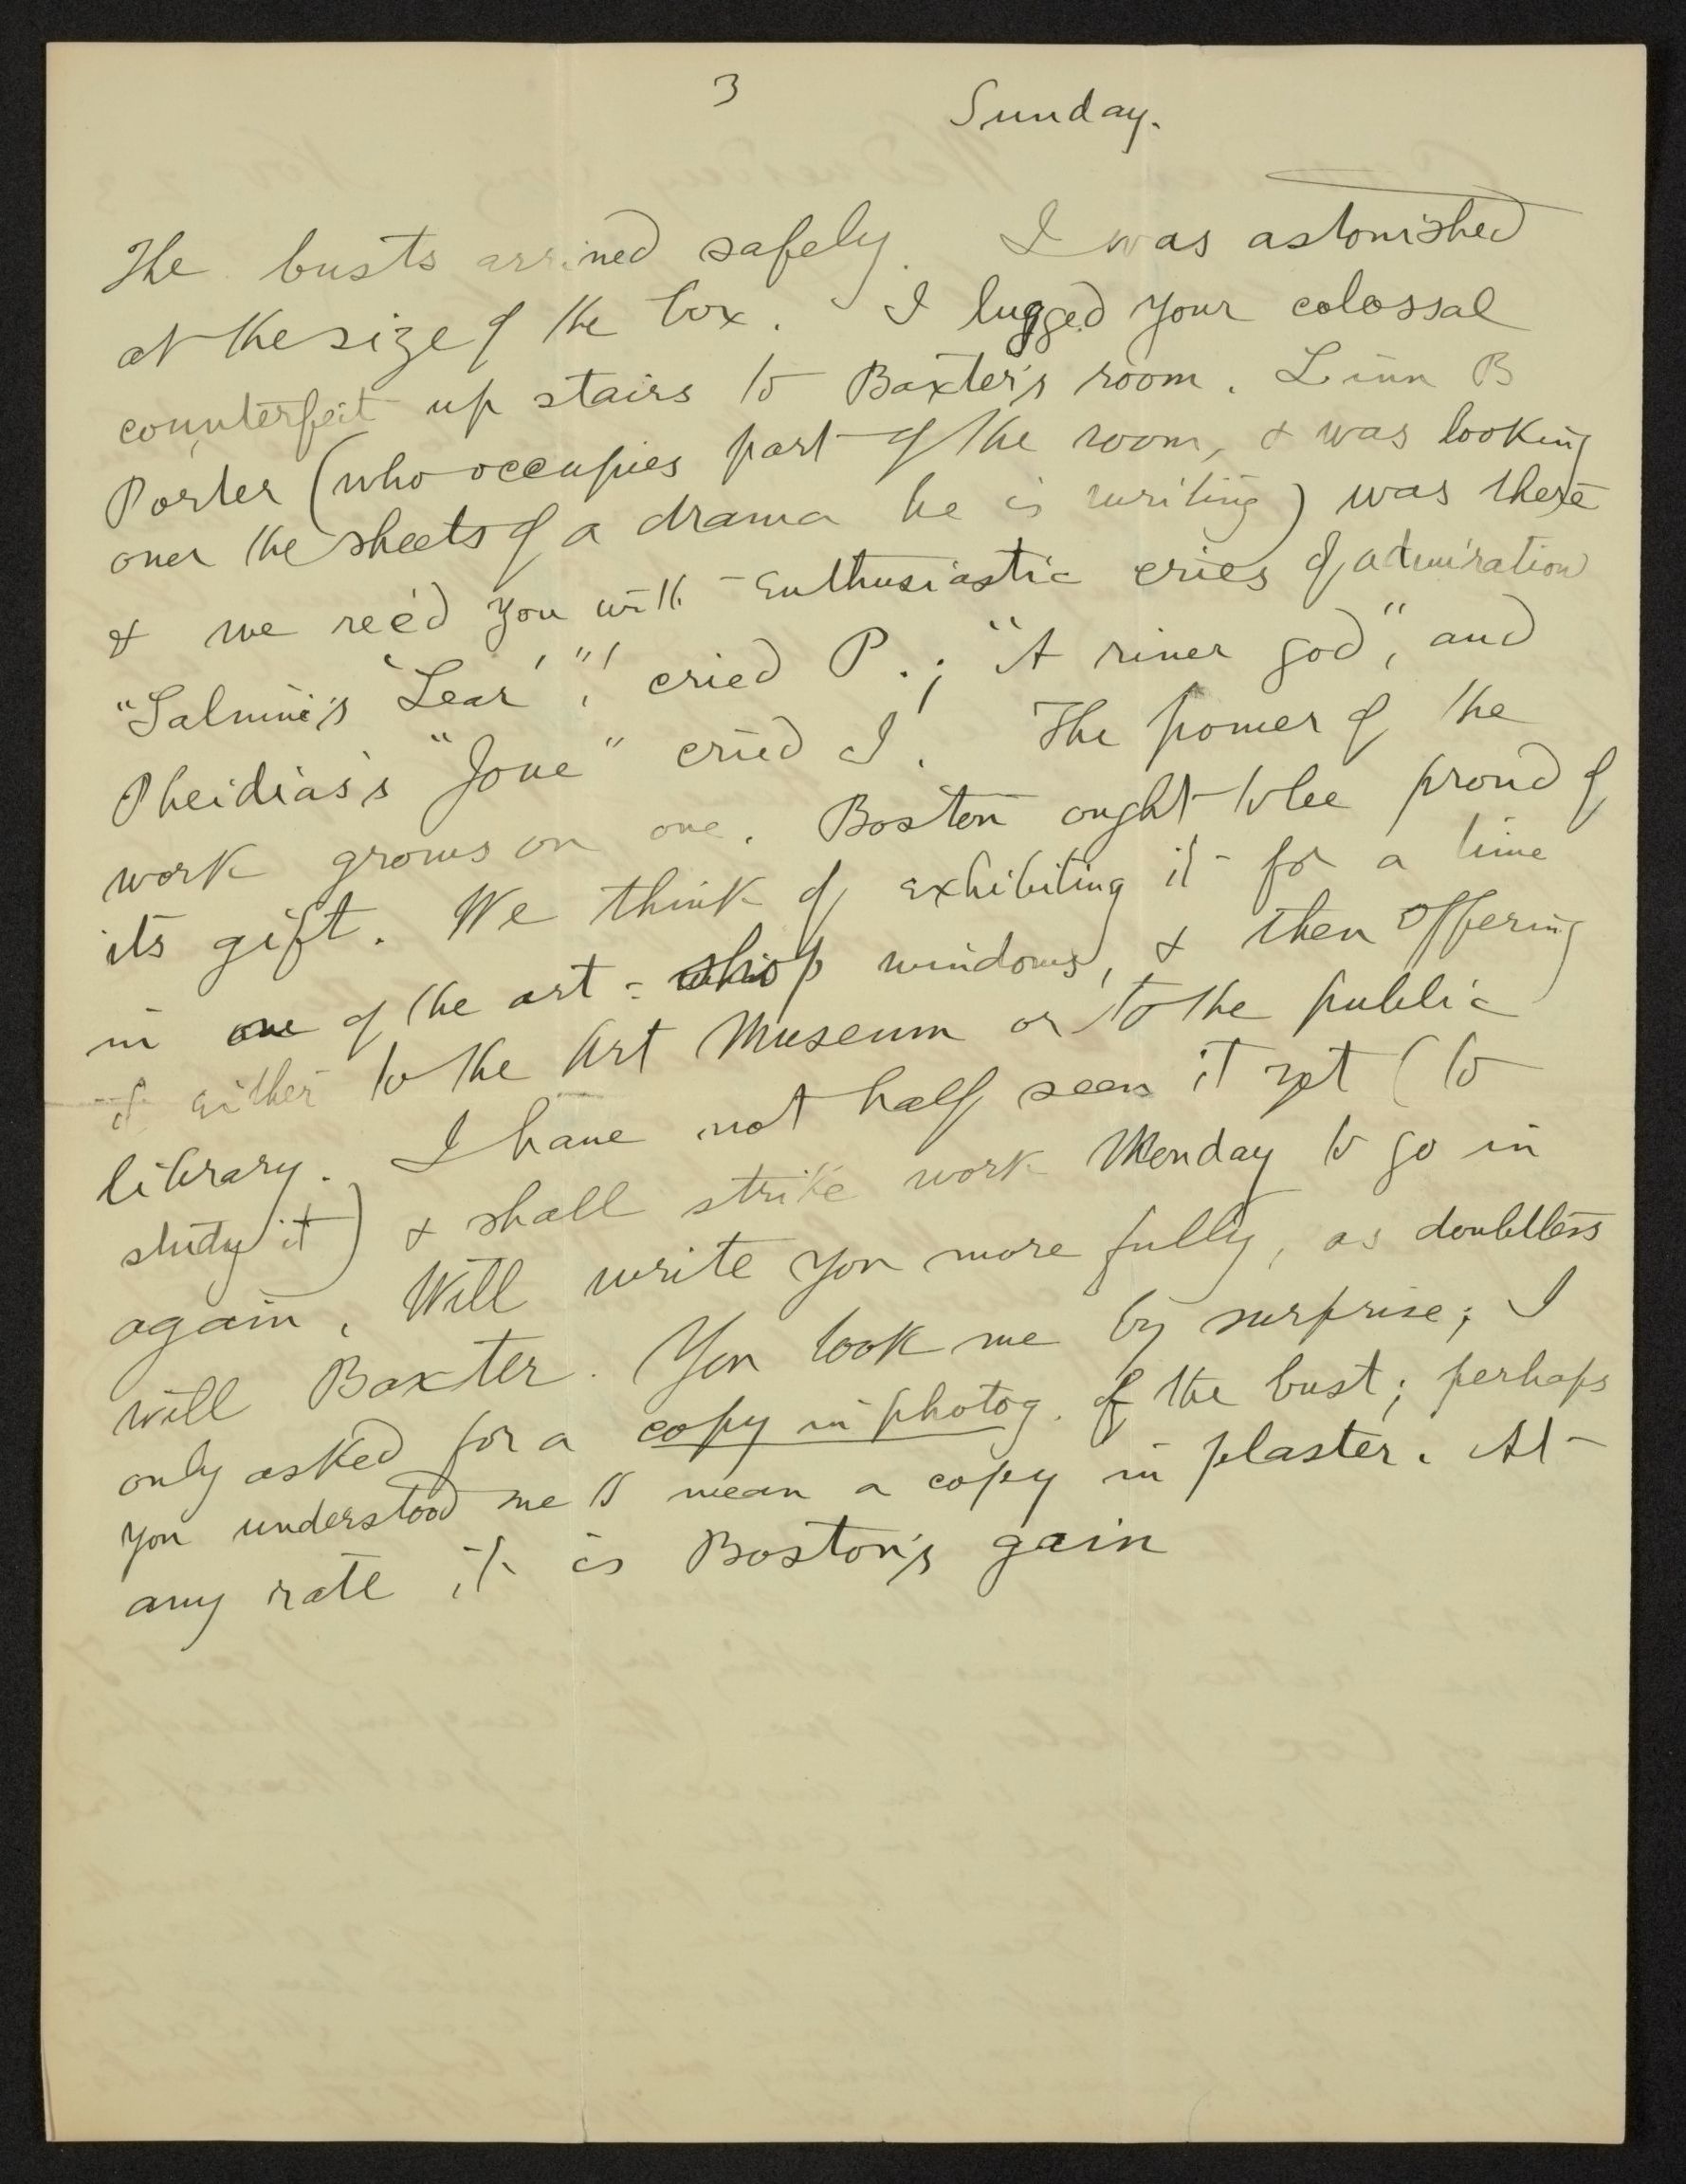 3
Sunday.
The busts arrived safely. I was astonished
at the size of the box. I lugged your colossal
counterfeit up stairs to Baxter's room. Linn B
Porter (who occupies part of the room, & was looking
over the sheets of a drama he is writing) was there
& we rec'd you with enthusiastic cries of admiration
"Salvini's 'Lear'"! cried P.; "A river god", and
Pheidias's "Jove" cried I. The power of the
work grows on one. Boston ought to be proud of
its gift. We think of exhibiting it for a time
in one of the art-shop windows, & then offering
it either to the Art Museum or to the public
library. I have not half seen it yet (to
study it) & shall strike work Monday to go in
again. Will write you more fully, as doubtless
will Baxter. You took me by surprise; I
only asked for a copy in photog. of the bust; perhaps
you understood me to mean a copy in plaster. At
any rate it is Boston's gain